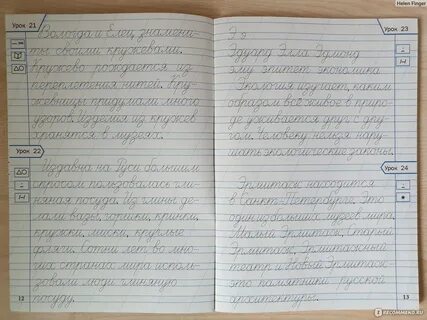 Helen Finger
Урок 21
Вологда и Елец знамени-
ты своими кружевами.
Кружево рождается из
переплетения нитей. Кру-
жевницы придумали много
узоров. Изделия из кружев
хранятся в музеях.
Урок 22
Издавна на Руси большим
спросом пользовалась гли-
няная посуда. Из глины де-
лали вазы, горшки, кринки,
кружки, миски, круглые
фляги. Сотни лет во мно-
гих странах мира исполь-
зовали люди глиняную
посуду.
12
Урок 23
Э э
Эдуард Элла Эдмонд
эму эпитет экономика
Экология изучает, каким
образом всё живое в приро-
де уживается друг с дру-
гом. Человеку нельзя нару-
шать экологические законы.
Урок 24
Эрмитаж находится
в Санкт-Петербурге. Это
один из больших музеев мира.
Малый Эрмитаж, Старый
Эрмитаж, Эрмитажный
театр и Новый Эрмитаж
это памятники русской
архитектуры.
13
IRECOMMEND.RU